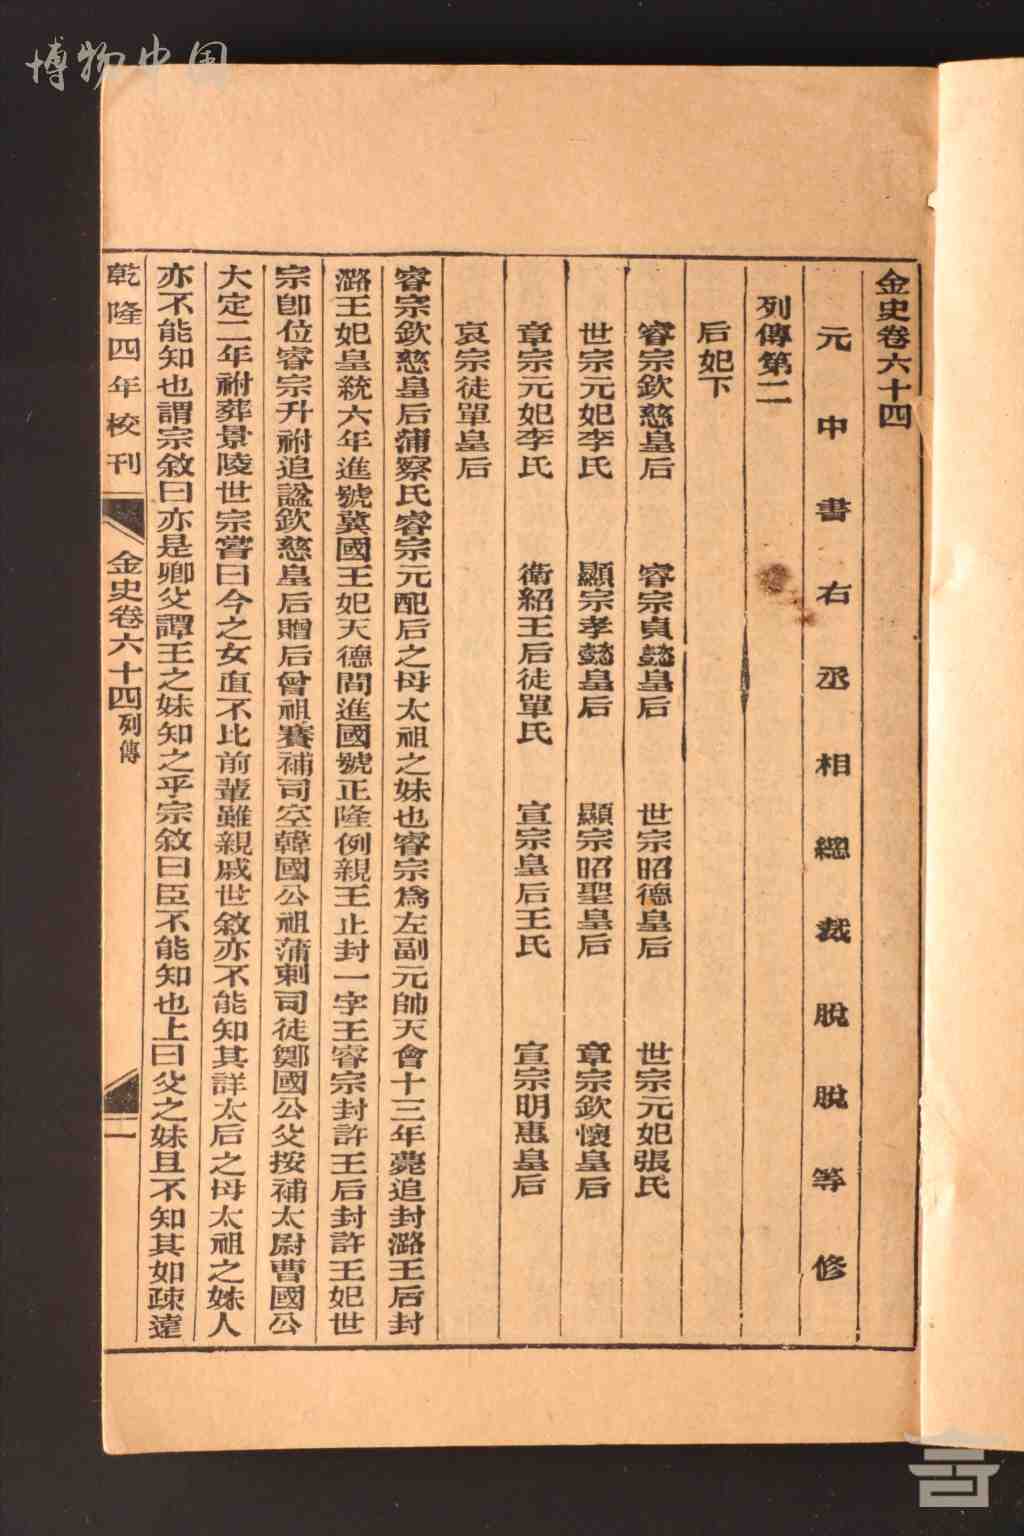 博物中国
金史卷六十四
元中書右丞相總裁脫脫等修
列傳第二
后妃下
睿宗欽慈皇后 睿宗貞懿皇后 世宗昭德皇后 世宗元妃張氏
世宗元妃李氏 顯宗孝懿皇后 顯宗昭聖皇后 章宗欽懷皇后
章宗元妃李氏 衛紹王后徒單氏 宣宗皇后王氏 宣宗明惠皇后
哀宗徒單皇后
睿宗欽慈皇后蒲察氏睿宗元配后之母太祖之妹也睿宗爲左副元帥天會十三年薨追封潞王后封
潞王妃皇統六年進號冀國王妃天德間進國號正隆例親王止封一字王睿宗封許王后封許王妃世
宗卽位睿宗升祔追諡欽慈皇后贈后曾祖賽補司空韓國公祖蒲剌司徒鄭國公父按補太尉曹國公
大定二年祔葬景陵世宗嘗曰今之女直不比前輩雖親戚世敘亦不能知其詳太后之母太祖之妹人
亦不能知也謂宗敘曰亦是卿父譚王之妹知之乎宗敘曰臣不能知也上曰父之妹且不知其如疎遠
乾隆四年校刊
金史卷六十四列傳
一